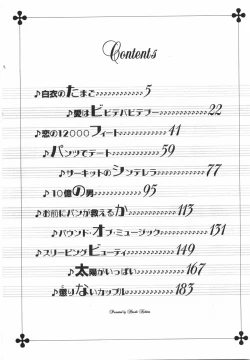 Contents
♪白衣のたまご♪♪♪♪♪♪♪♪5
♪愛はビビデバビデブー♪♪♪♪♪♪♪♪22
♪恋の12000フィート♪♪♪♪♪♪♪♪41
♪パンツでデート♪♪♪♪♪♪♪♪59
♪サーキットのシンデレラ♪♪♪♪♪♪♪♪77
♪10億の男♪♪♪♪♪♪♪♪95
♪お前にパンが救えるか♪♪♪♪♪♪♪♪113
♪バウンド・オブ・ミュージック♪♪♪♪♪♪♪♪131
♪スリーピングビューティ♪♪♪♪♪♪♪♪149
♪太陽がいっぱい♪♪♪♪♪♪♪♪167
♪懲りないカップル♪♪♪♪♪♪♪♪183
Presented by